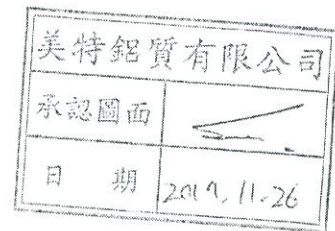 美特鋁質有限公司
承認圖面
日 期 2019.11.26